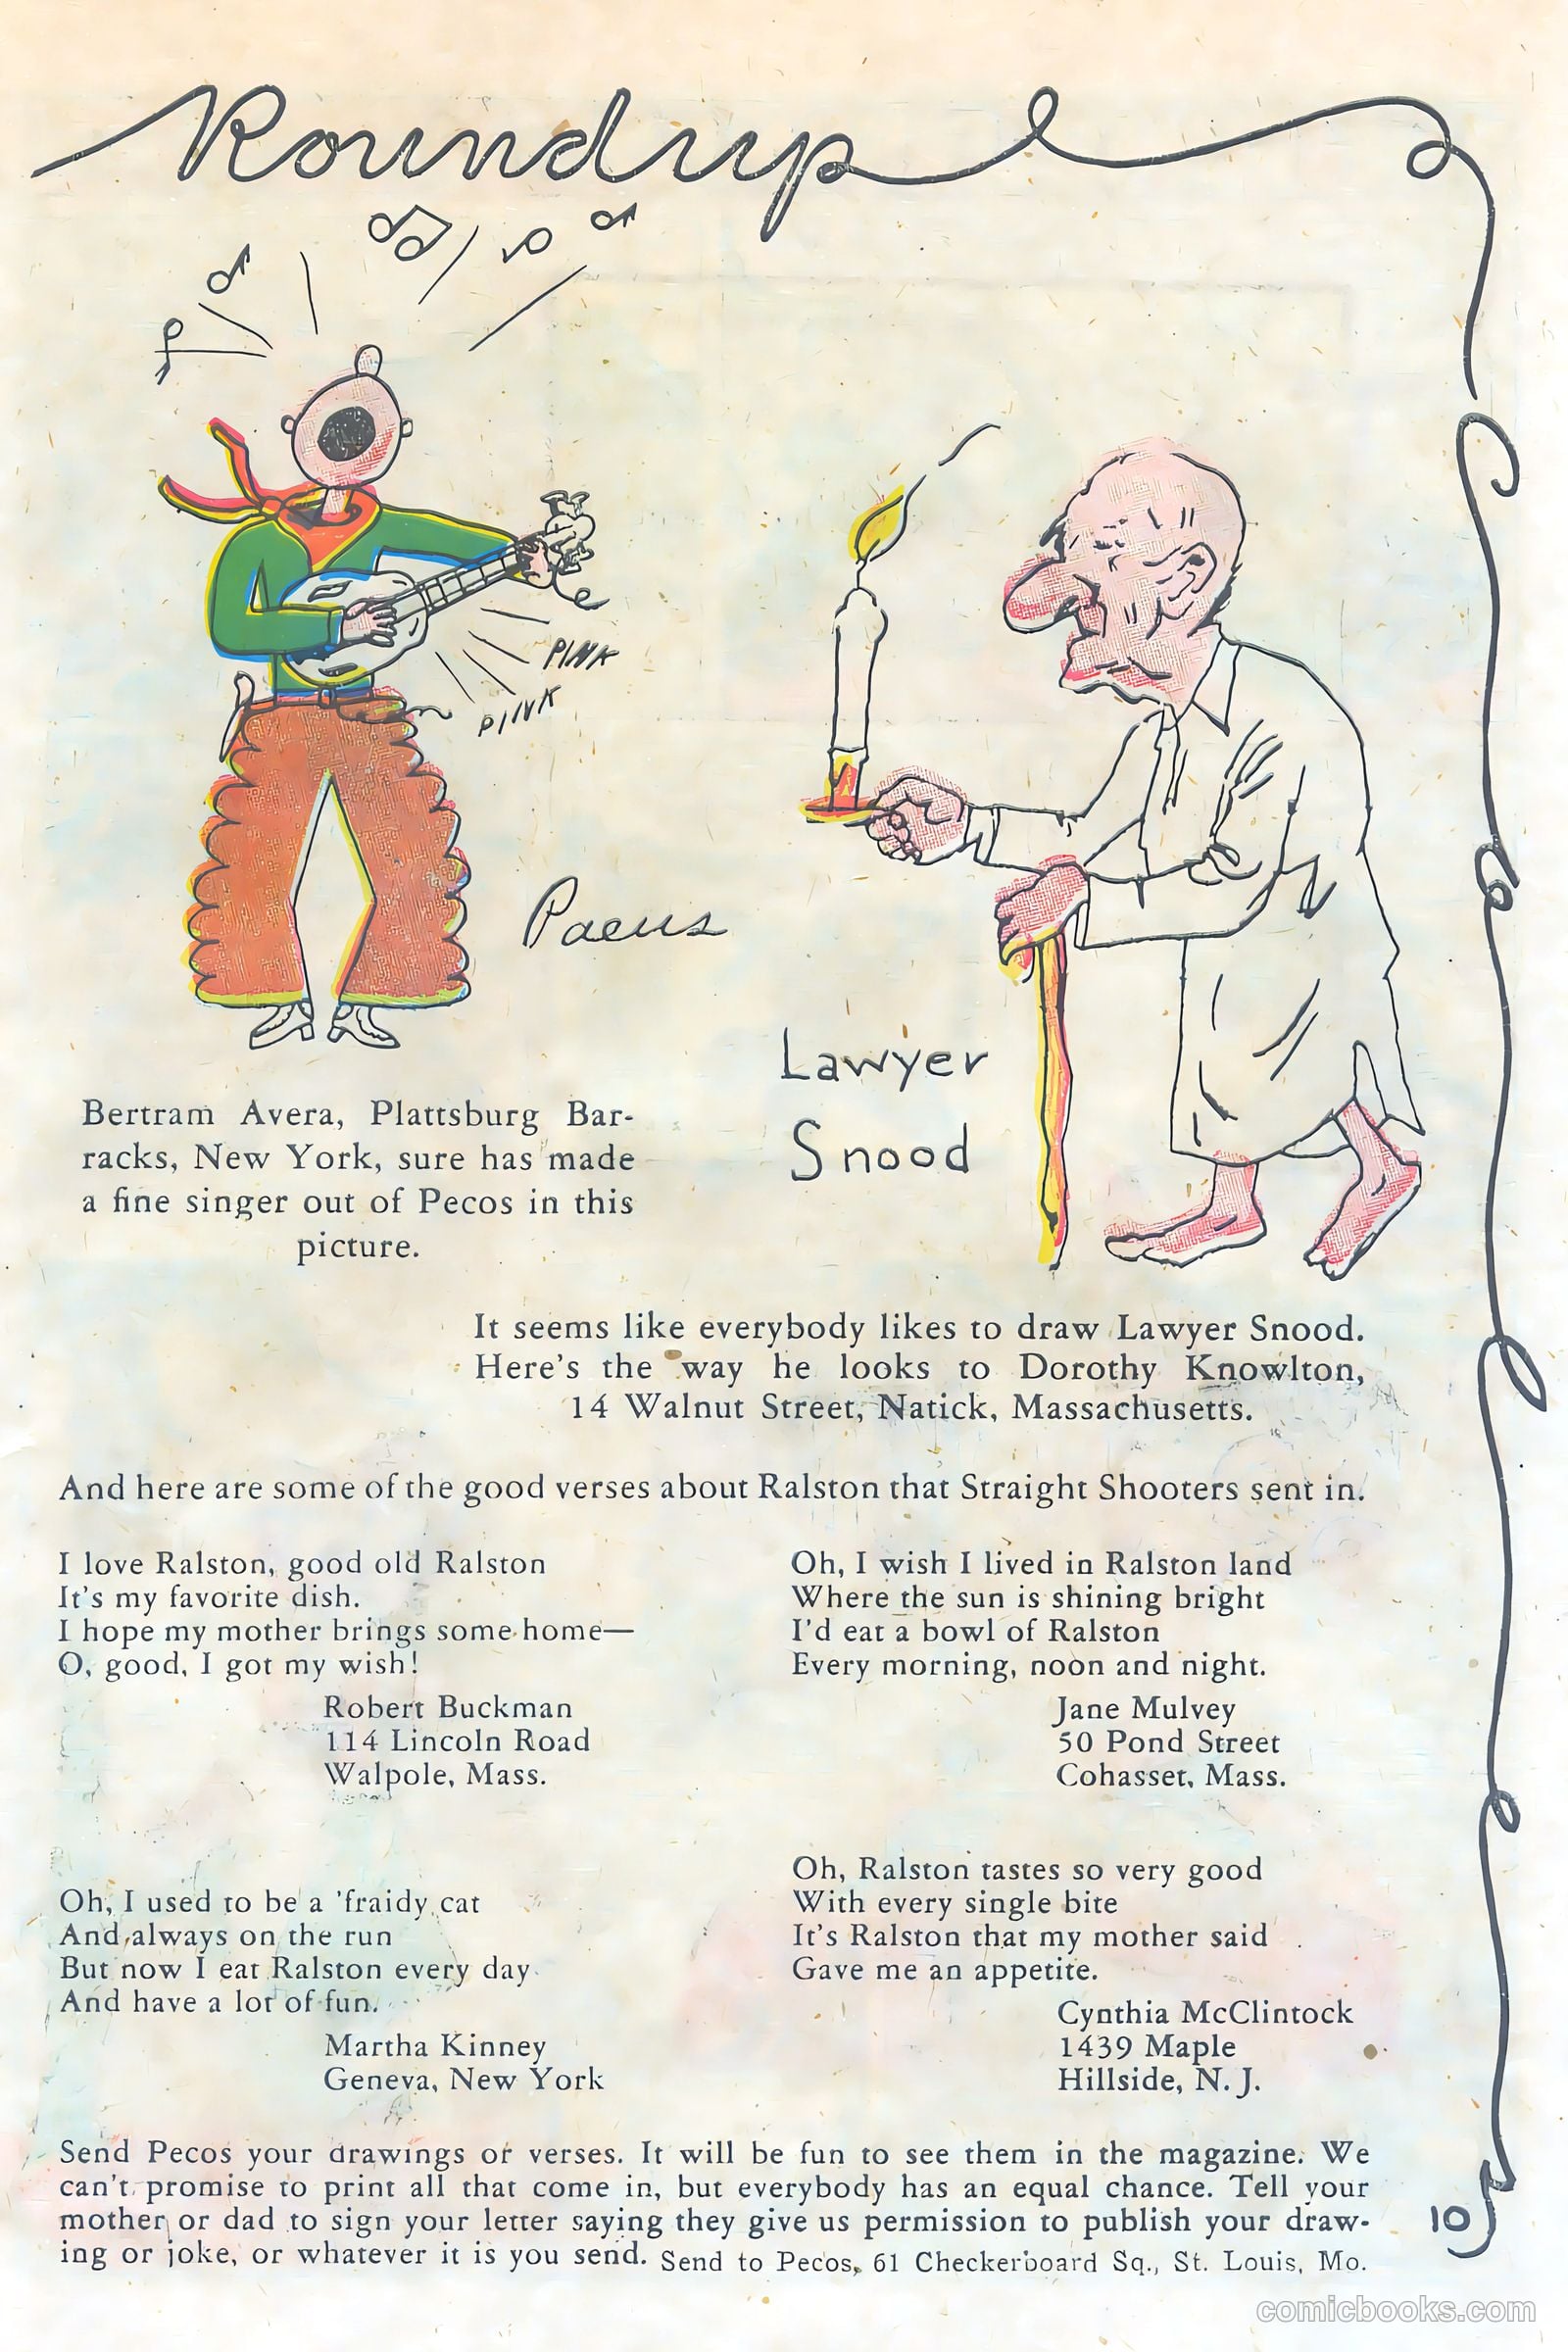 Roundup
PINK
PINK
Paeus
Bertram Avera, Plattsburg Bar-
racks, New York, sure has made
a fine singer out of Pecos in this
picture.
Lawyer
Snood
It seems like everybody likes to draw Lawyer Snood.
Here's the way he looks to Dorothy Knowlton,
14 Walnut Street, Natick, Massachusetts.
And here are some of the good verses about Ralston that Straight Shooters sent in.
I love Ralston, good old Ralston
It's my favorite dish.
I hope my mother brings some home—
O, good, I got my wish!
Robert Buckman
114 Lincoln Road
Walpole, Mass.
Oh, I wish I lived in Ralston land
Where the sun is shining bright
I'd eat a bowl of Ralston
Every morning, noon and night.
Jane Mulvey
50 Pond Street
Cohasset, Mass.
Oh, I used to be a 'fraidy cat
And always on the run
But now I eat Ralston every day
And have a lot of fun.
Martha Kinney
Geneva, New York
Oh, Ralston tastes so very good
With every single bite
It's Ralston that my mother said
Gave me an appetite.
Cynthia McClintock
1439 Maple
Hillside, N. J.
Send Pecos your drawings or verses. It will be fun to see them in the magazine. We
can't promise to print all that come in, but everybody has an equal chance. Tell your
mother or dad to sign your letter saying they give us permission to publish your draw-
ing or joke, or whatever it is you send. Send to Pecos, 61 Checkerboard Sq., St. Louis, Mo.
10
comicbooks.com